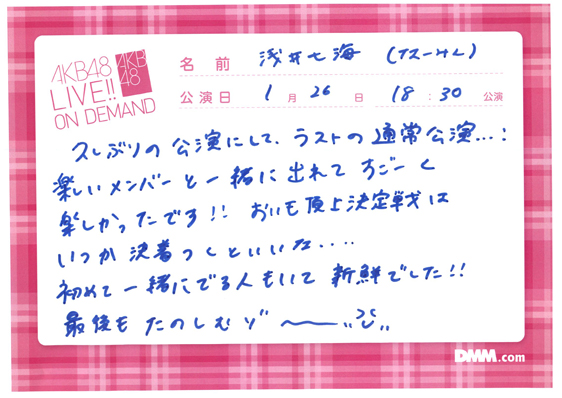 AKB48
LIVE!!
ON DEMAND
AKB
48
名前 浅井七海 (なーみん)
公演日 1月26日 18:30公演
久しぶりの公演にして、ラストの通常公演...!
楽しいメンバーと一緒に出れてすごーく
楽しかったです!! おいも頂上決定戦は
いつか決着つくといいな....
初めて一緒にでる人もいて新鮮でした!!
最後もたのしむゾ〜
DMM.com